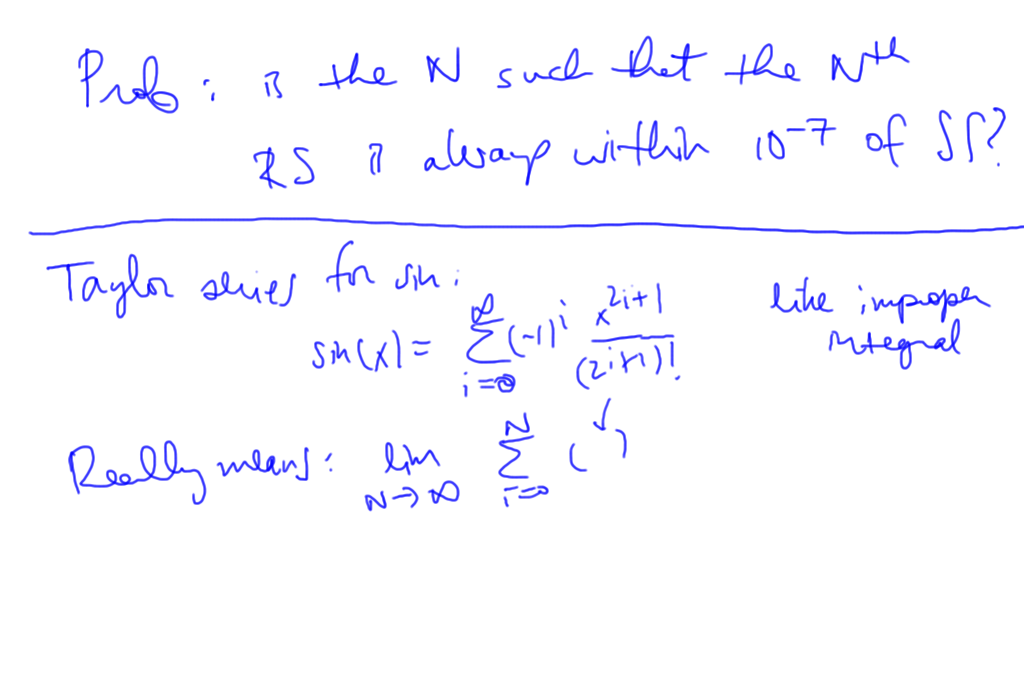 Prob: is the N such that the Nth
RS is always within 10^-7 of ∫∫?
Taylor series for sin:
sin(x) = ∑_{i=0}^{∞} (-1)^i x^{2i+1}/(2i+1)!
like improper
integral
Really means: lim_{N→∞} ∑_{i=0}^{N} (↓)